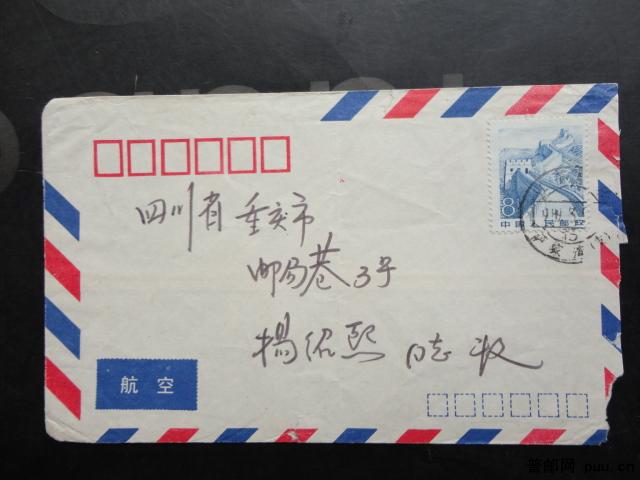 8
中国人民邮政
四川省重庆市
邮局巷3号
楊绍熙 同志 收
航空
普邮网 puu.cn